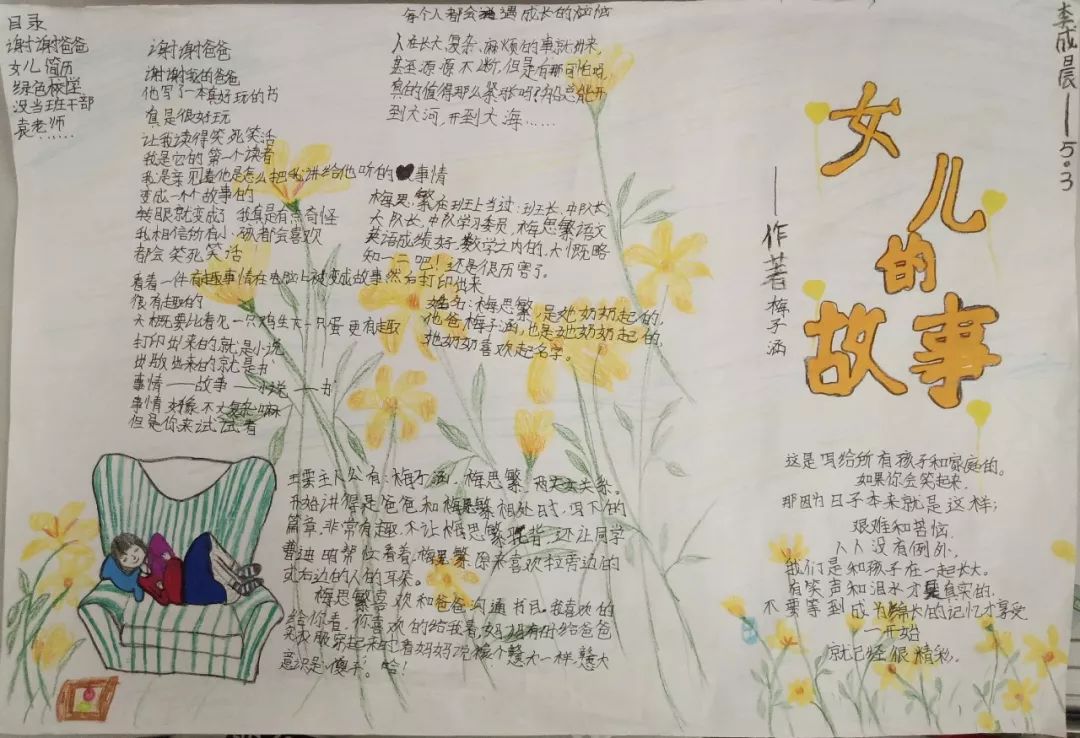 目录
谢谢爸爸
女儿简历
绿色校学
没当班干部
袁老师
……
谢谢爸爸
谢谢我的爸爸
他写了一本真好玩的书
真是很好玩
让我读得笑死笑活
我是它的第一个读者
我是亲见着他是怎么把我讲给他听的事情
变成一个个故事的
转眼就变成了 我真是有点奇怪
我相信所有小孩都会喜欢
都会笑死笑活
看着一件有趣事情在电脑上被变成故事然后打印出来
很有趣的
大概要比看见一只鸡生下一只蛋更有趣
打印出来的就是小说
出版出来的就是书
事情——故事——小说——书
事情好像不太复杂嘛
但是你来试试看
每个人都会遇成长的烦恼
人在长大,复杂、麻烦的事就出来,
甚至源源不断,但是有那可怕吗,
真的值得那么紧张吗?船总能开
到大河,开到大海……
梅思繁在班上当过:班长,中队长
大队长,中队学习委员,梅思繁语文
英语成绩好,数学之内的,大慨略
知一二吧!还是很厉害了。
姓名:梅思繁,是她奶奶起的,
他爸梅子涵,也是她奶奶起的,
她奶奶喜欢起名字。
主要主人公有:梅子涵,梅思繁,
开始讲得是爸爸和梅思繁相处时,写下的
篇章,非常有趣,不让梅思繁驼背,还让同学
曹迪明帮忙看着,梅思繁原来喜欢拉旁边的
或右边的人的耳朵。
梅思繁喜欢和爸爸沟通书目。我喜欢的
给你看,你喜欢的给我看,
意识是:傻子。哈!
女儿的故事
——作著梅子涵
李成晨——5.3
这是写给所有孩子和家庭的。
如果你会笑起来,
那因为日子本来就是这样;
艰难和苦恼,
人人没有例外,
我们是和孩子在一起长大。
有笑声和泪水才是真实的,
不要等到成为绵长的记忆才享受
一开始
就已经很精彩,